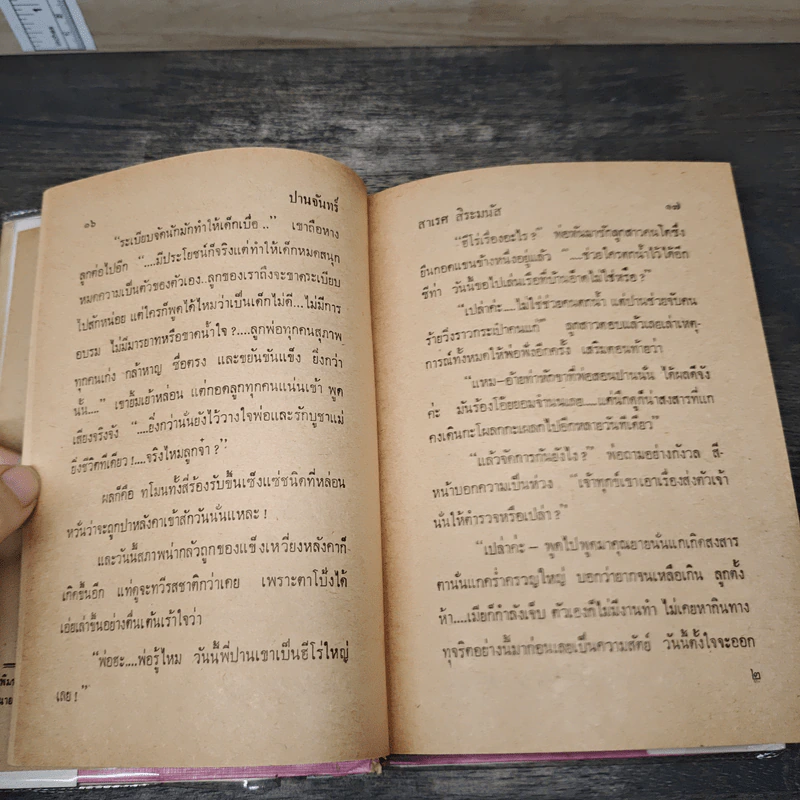 ๑๖
ปานจันทร์
"ระเบียบจัดนักมักทำให้เด็กเบื่อ .." เขาถือหาง
ลูกต่อไปอีก "....มีประโยชน์ก็จริงแต่ทำให้เด็กหมดสนุก
หมดความเป็นตัวของตัวเอง..ลูกของเราถึงจะขาดระเบียบ
ไปสักหน่อย แต่ใครก็พูดได้ไหมว่าเป็นเด็กไม่ดี...ไม่มีการ
อบรม ไม่มีมารยาทหรือขาดน้ำใจ ?....ลูกพ่อทุกคนสุภาพ
ทุกคนเก่ง กล้าหาญ ซื่อตรง และขยันขันแข็ง ยิ่งกว่า
นั้น...." เขายิ้มเย้าหล่อน แต่กอดลูกทุกคนแน่นเข้า พูด
เสียงจริงจัง "....ยิ่งกว่านั้นยังไว้วางใจพ่อและรักบูชาแม่
ยิ่งชีวิตทีเดียว !....จริงไหมลูกจ๋า ?"
ผลก็คือ ทโมนทั้งสี่ร้องรับขึ้นเซ็งแซ่ชนิดที่หล่อน
หวั่นว่าจะถูกปาหลังคาเข้าสักวันนั่นแหละ !
และวันนี้สภาพน่ากลัวถูกของแข็งเหวี่ยงหลังคาก็
เกิดขึ้นอีก แต่ดูจะทวีรสชาติกว่าเคย เพราะตาโป้งได้
เอ่ยเล่าขึ้นอย่างตื่นเต้นเร้าใจว่า
"พ่อฮะ....พ่อรู้ไหม วันนี้พี่ปานเขาเป็นฮีโร่ใหญ่
เลย !"
สาเรศ สิระมนัส
๑๗
"ฮีโร่เรื่องอะไร ?" พ่อหันมารักลูกสาวคนโตซึ่ง
ยืนกอดแขนข้างหนึ่งอยู่แล้ว "....ช่วยใครตกน้ำไว้ได้อีก
ซีท่า วันนี้ขอไปเล่นเรือที่บ้านอาดไม่ใช่หรือ ?"
"เปล่าค่ะ....ไม่ใช่ช่วยคนตกน้ำ แต่ปานช่วยจับคน
ร้ายวิ่งราวกระเป๋าคนแก่" ลูกสาวตอบแล้วเลยเล่าเหตุ-
การณ์ทั้งหมดให้พ่อฟังอีกครั้ง เสริมตอนท้ายว่า
"แหม-อ้ายท่าหักขาที่พ่อสอนปานนั่น ได้ผลดีจัง
ค่ะ มันร้องโอ๊ยยอมจำนนเลย....แต่นึกดูก็น่าสงสารที่แก
คงเดินกะโผลกกะเผลกไปอีกหลายวันทีเดียว"
"แล้วจัดการกันยังไง ?" พ่อถามอย่างกังวล สี-
หน้าบอกความเป็นห่วง "เจ้าทุกข์เขาเอาเรื่องส่งตัวเจ้า
นั่นให้ตำรวจหรือเปล่า ?"
"เปล่าค่ะ - พูดไปพูดมาคุณยายนั่นแกเกิดสงสาร
ตานั่นแกคร่ำครวญใหญ่ บอกว่ายากจนเหลือเกิน ลูกตั้ง
ห้า....เมียก็กำลังเจ็บ ตัวเองก็ไม่มีงานทำ ไม่เคยหากินทาง
ทุจริตอย่างนี้มาก่อนเลยเป็นความสัตย์ วันนี้ตั้งใจจะออก
๒